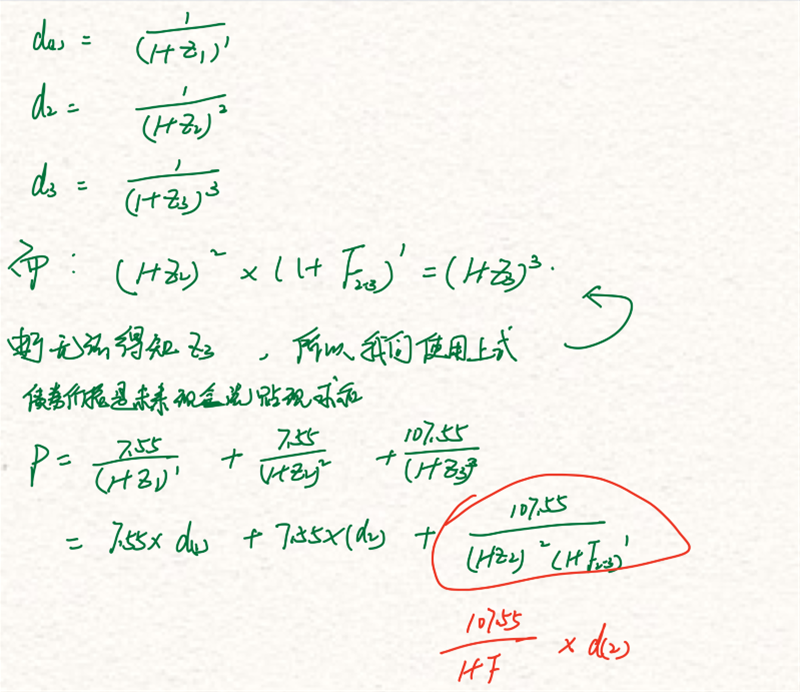 d(1) = 1/(1+Z₁)¹
d₂ = 1/(1+Z₂)²
d₃ = 1/(1+Z₃)³
即: (1+Z₂)² × (1+F₂₋₃)¹ = (1+Z₃)³.
由于无法得知 Z₃ , 所以我们使用上式
债券价格是未来现金流贴现求和
P = 7.55/(1+Z₁)¹ + 7.55/(1+Z₂)² + 107.55/(1+Z₃)³
= 7.55× d(1) + 7.55×(d₂) + 107.55/(1+Z₂)²(1+F₂₋₃)¹
107.55/1+F × d(2)